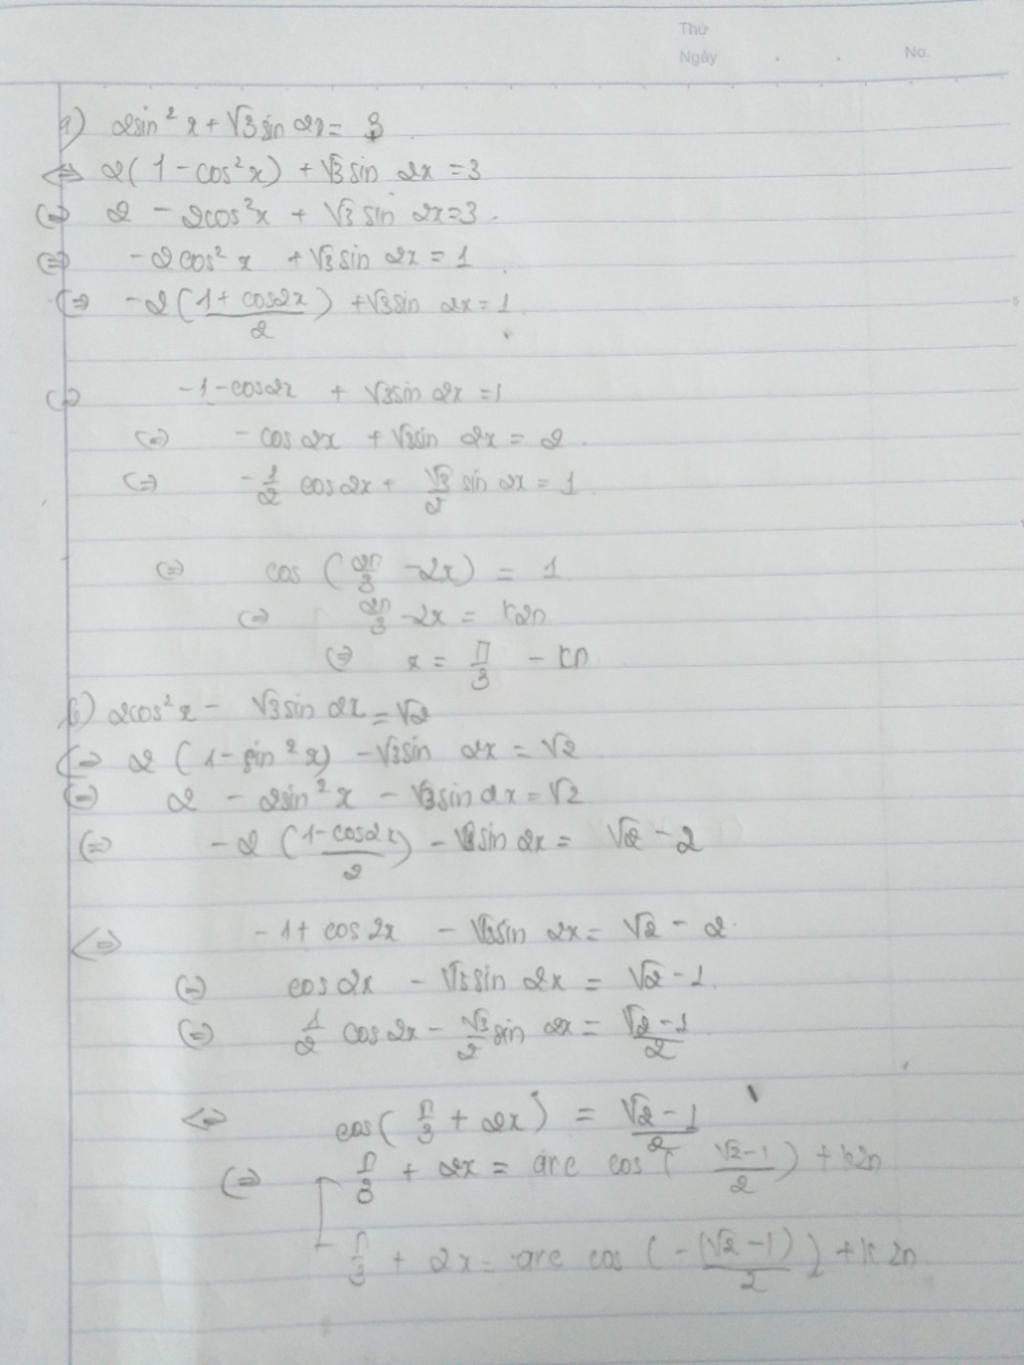 Thứ
Ngày . . No.
a) 2sin² x + √3 sin 2x = 3
⇔ 2(1 - cos²x) + √3 sin 2x = 3
⇔ 2 - 2cos²x + √3 sin 2x = 3.
⇔ -2cos² x + √3 sin 2x = 1
⇔ -2(\frac{1 + cos2x}{2}) + √3 sin 2x = 1
⇔ -1 - cos2x + √3 sin 2x = 1
⇔ - cos 2x + √3 sin 2x = 2.
⇔ -\frac{1}{2} cos 2x + \frac{√3}{2} sin 2x = 1
⇔ cos (\frac{2π}{3} - 2x) = 1
⇔ \frac{2π}{3} - 2x = k2π
⇔ x = \frac{π}{3} - kπ
b) 2cos² x - √3 sin 2x = √2
⇔ 2 (1 - sin² x) - √3 sin 2x = √2
⇔ 2 - 2sin² x - √3 sin 2x = √2
⇔ -2 (\frac{1 - cos2x}{2}) - √3 sin 2x = √2 - 2
⇔ -1 + cos 2x - √3 sin 2x = √2 - 2.
⇔ cos 2x - √3 sin 2x = √2 - 1.
⇔ \frac{1}{2} cos 2x - \frac{√3}{2} sin 2x = \frac{√2 - 1}{2}
⇔ cos(\frac{π}{3} + 2x) = \frac{√2 - 1}{2}
⇔ [ \frac{π}{3} + 2x = arc cos (\frac{√2 - 1}{2}) + k2π
\frac{π}{3} + 2x = - arc cos (\frac{-(√2 - 1)}{2}) + k2π